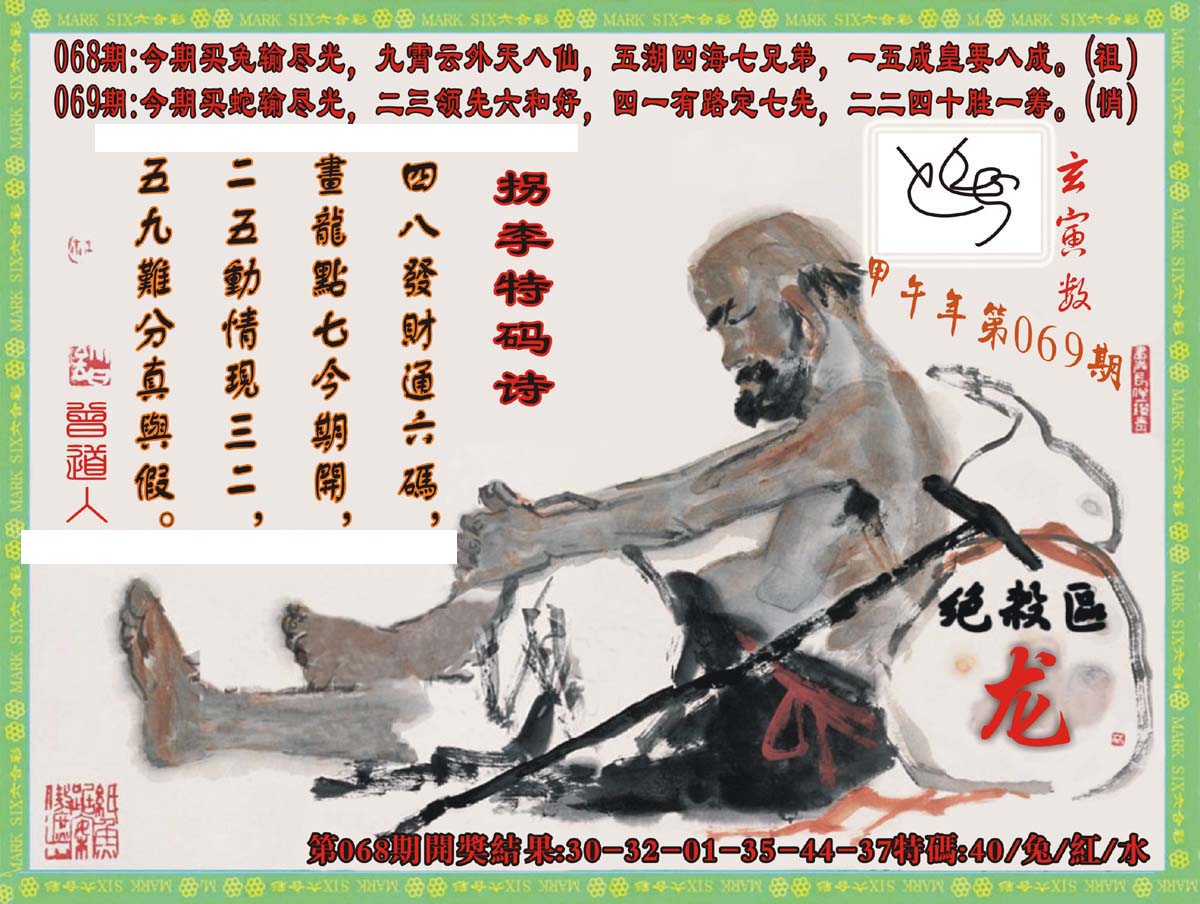 MARK SIX六合彩
068期:今期买兔输尽光，九霄云外天八仙，五湖四海七兄弟，一五成皇要八成。(祖)
069期:今期买蛇输尽光，二三领先六和好，四一有路定七先，二二四十胜一筹。(悄)
玄寅数
甲午年第069期
拐李特码诗
四八發財通六碼，
畫龍點七今期開，
二五動情現三二，
五九難分真與假。
曾道人
绝殺區
龙
第068期開獎結果:30-32-01-35-44-37特碼:40/兔/紅/水